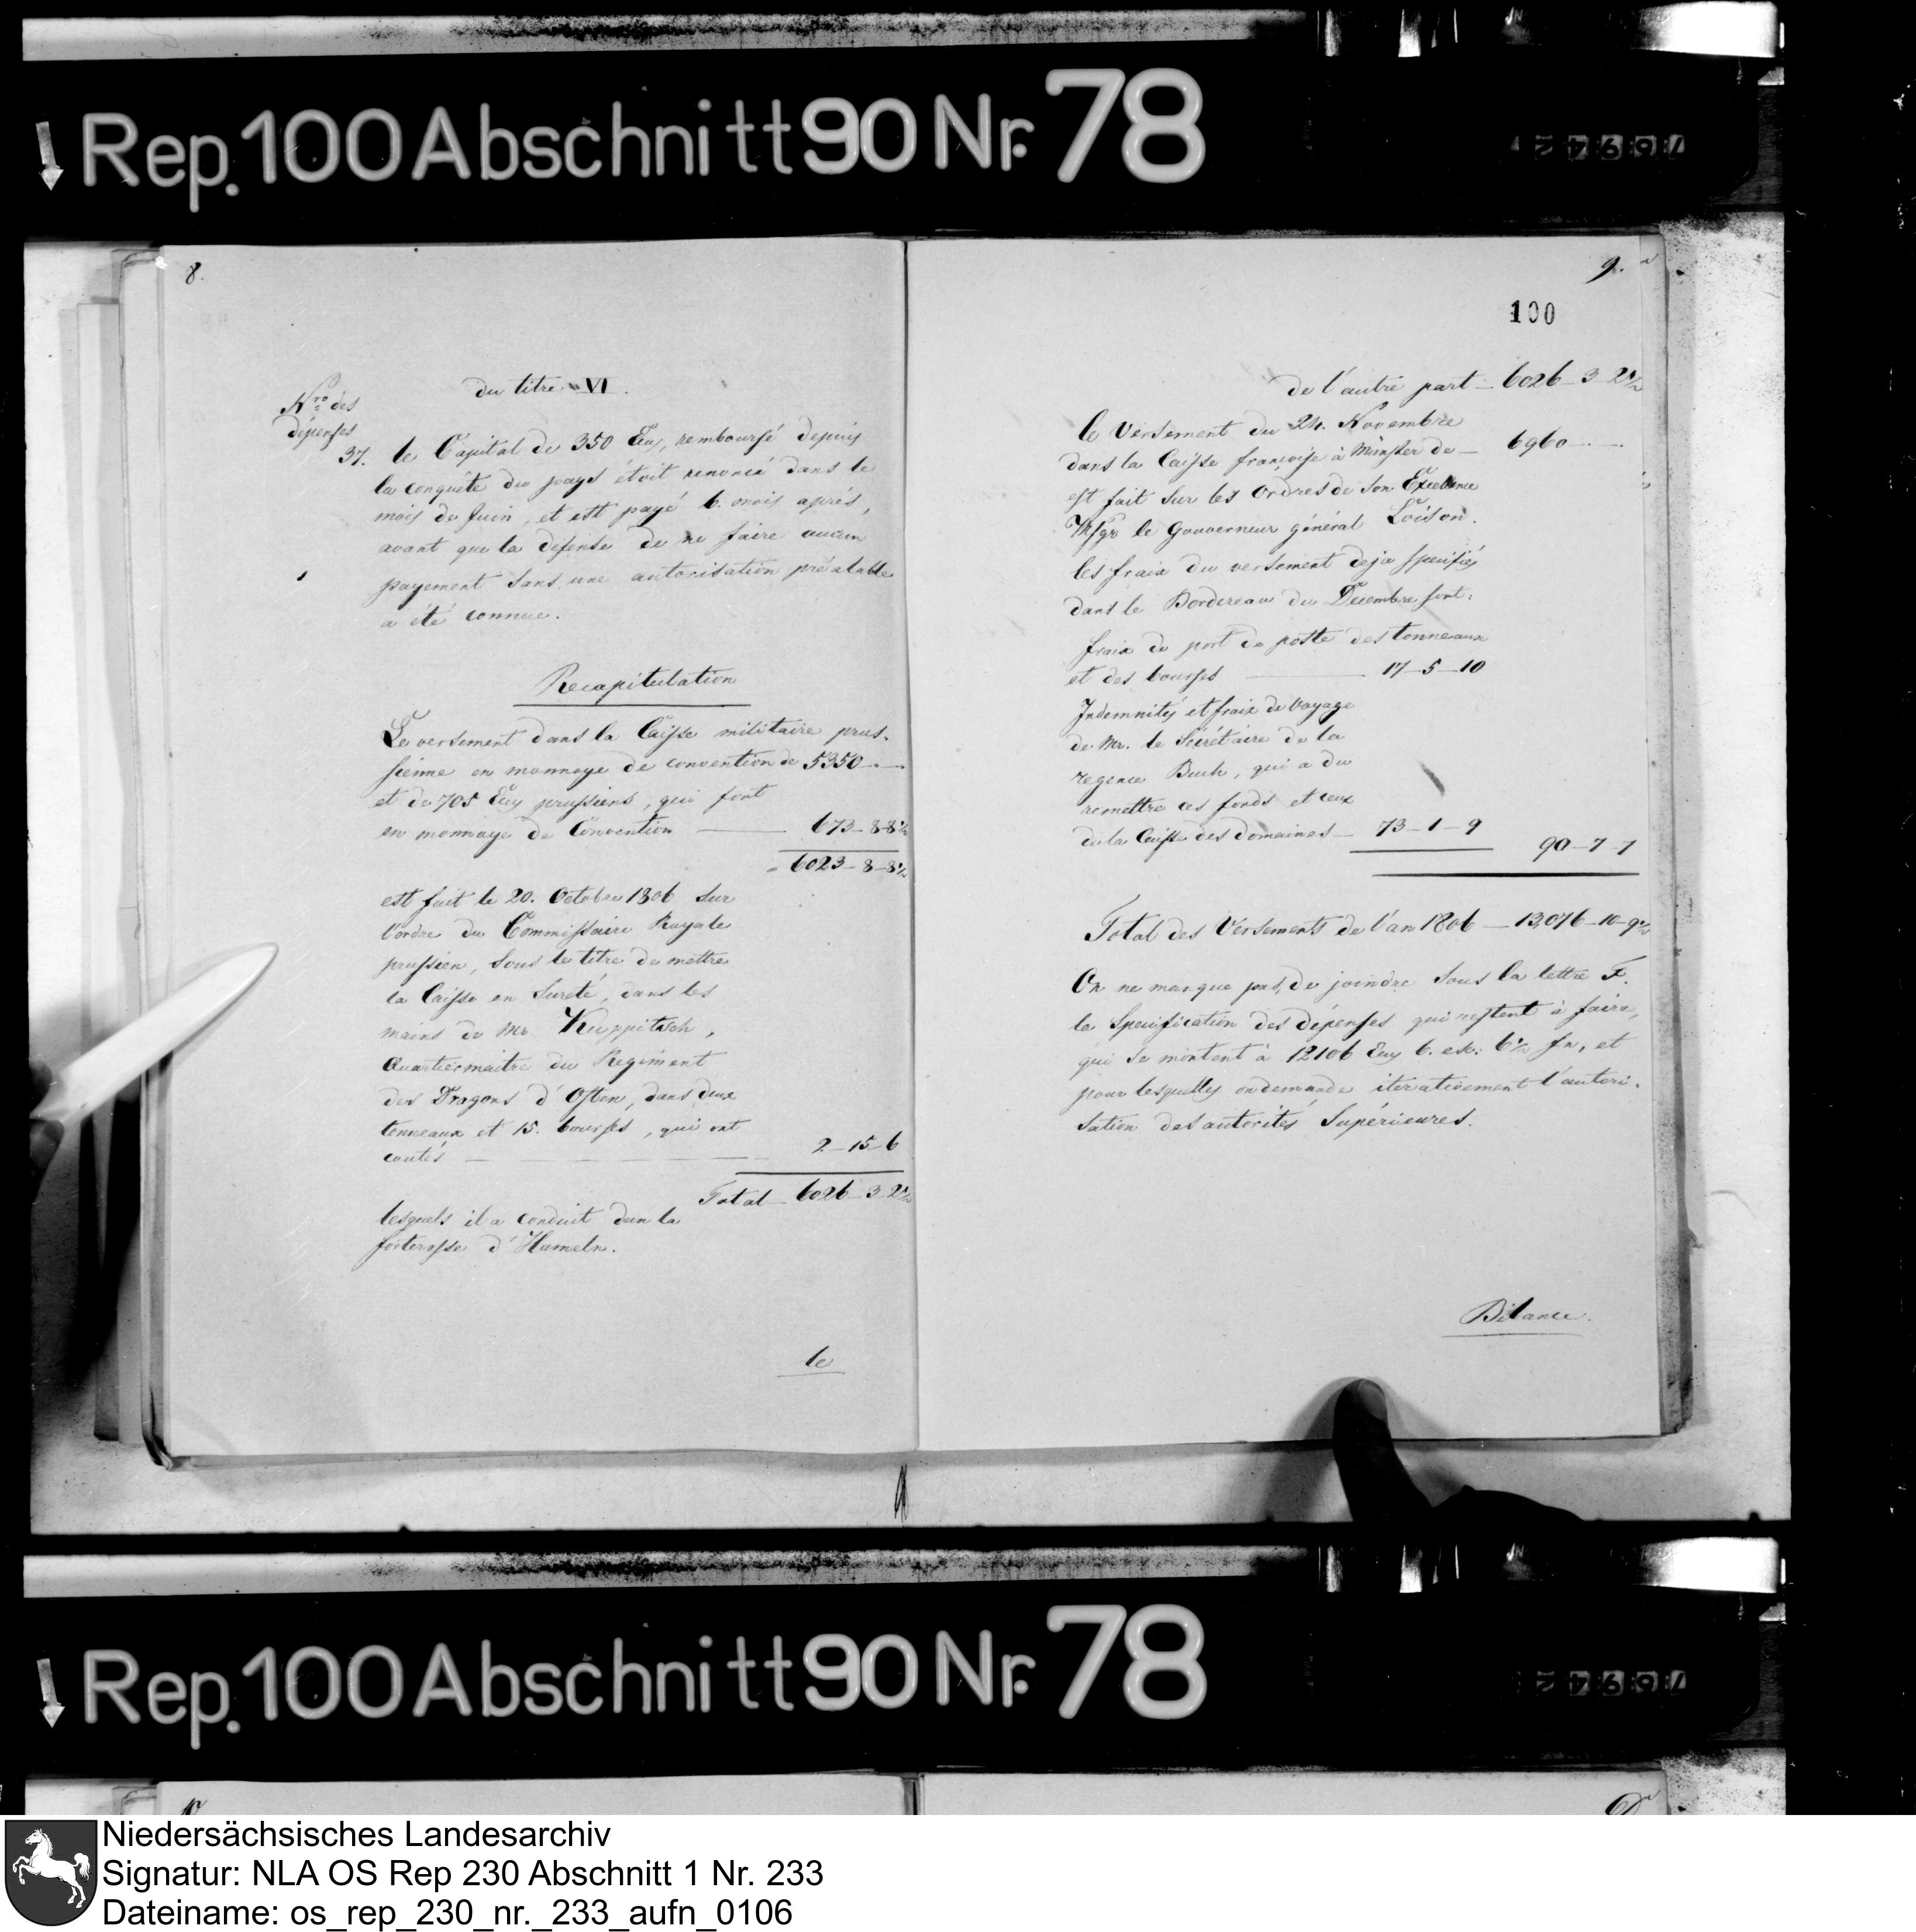 Rep. 100 Abschnitt 90 Nr. 78
8.
du titre VI.
Nro des
dépenses
37. le Capital de 350 Ecus, remboursé depuis
la conquête du pays étoit renoncé dans le
mois de Juin, et est payé 6. mois aprés,
avant que la defense de ne faire aucun
payement sans une autorisation préalable
a été connue.
Recapitulation
Le versement dans la Caisse militaire prus-
sienne en monnoye de convention de 5350 — —
et de 705 Ecus prussiens, qui font
en monnoye de Convention — 673 - 8 - 8½
6023 - 8 - 8½
est fait le 20. Octobre 1806 sur
l'ordre du Commissaire Royale
prussien, sous le titre de mettre
la Caisse en Sureté, dans les
mains de Mr. Kuppitsch,
Quartiermaitre du Regiment
des Dragons d'Osten, dans deux
tonneaux et 15. bourses, qui ont
coutés — 2 - 15 - 6
Total - 6026 - 3 - 2½
lesquels il a conduit dan la
forteresse d'Hameln.
le
9.
100
de l'autre part - 6026 - 3 - 2½
le Versement du 24. Novembre
dans la Caisse françoise à Münster de — 6960 — —
est fait sur les Ordres de Son Excellence
Msgr le Gouverneur général Loison.
les fraix du versement deja specifiés
dans le Bordereau du Decembre sont:
fraix de port de poste des tonneaux
et des bourses — 17 - 5 - 10
Indemnités et fraix de voyage
de Mr. le Sécrétaire de la
regence Buch, qui a du
remettre ces fonds et ceux
de la Caisse des domaines — 73 - 1 - 9
90 - 7 - 7
Total des Versements de l'an 1806 — 13,076 - 10 - 9½
On ne manque pas, de joindre sous la lettre F.
la Specification des dépenses qui restent à faire,
qui se montent à 12106 Ecus 6. esc: 6½ fn, et
pour lesquelles on demande iterativement l'autori-
sation des autorités Supérieures.
Bilance.
Rep. 100 Abschnitt 90 Nr. 78
Niedersächsisches Landesarchiv
Signatur: NLA OS Rep 230 Abschnitt 1 Nr. 233
Dateiname: os_rep_230_nr._233_aufn_0106